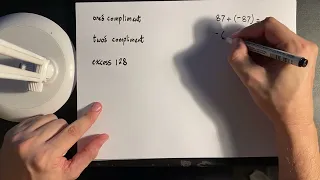 one's compliment
87 + (-87) =
two's compliment
excess 128